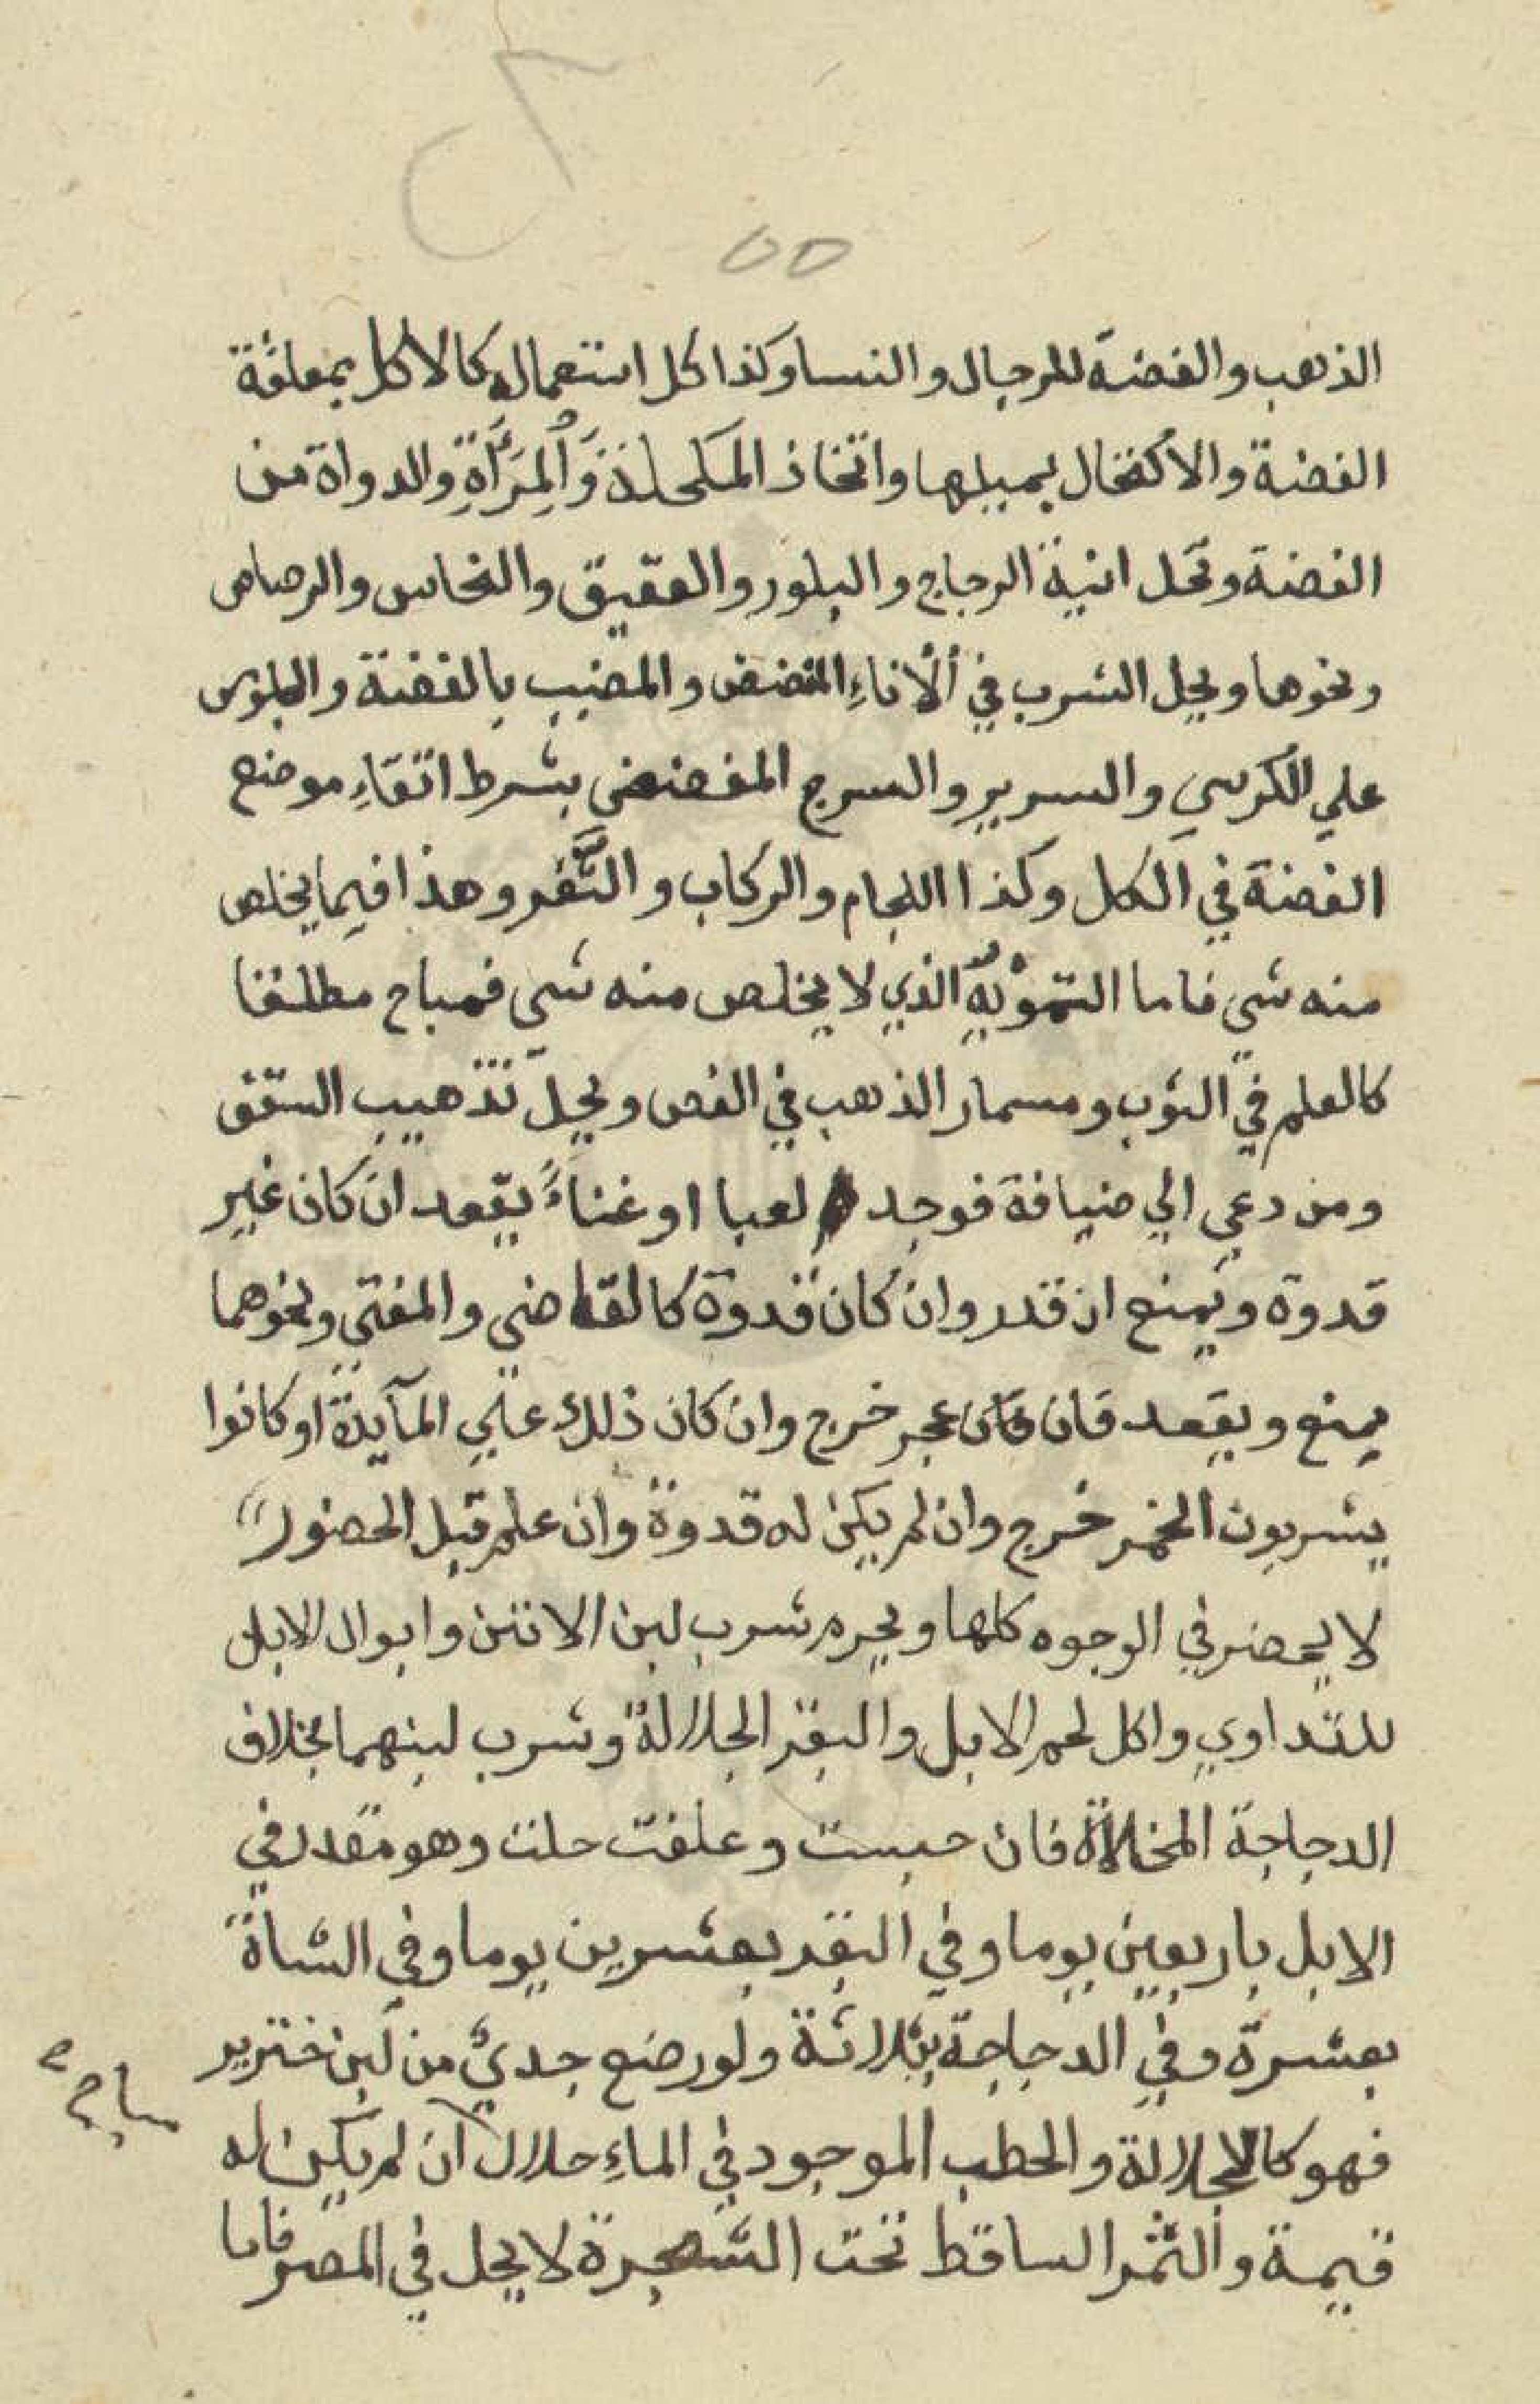 ٥٥
الذهب والفضة للرجال والنسا وكذا كل استعمال كالاكل بمعلقة
الفضة والاكتحال بميلها واتخاذ المكحلة وَالْمِرَآةِ والدواة من
الفضة وتحل انية الزجاج والبلور والعقيق والنحاس والرصاص
ونحوها ويحل الشرب في ألاناءِ المفضض والمضبب بالفضة والجلوس
علي الكرسي والسرير والسرج المفضض بشرط اتقاءِ موضع
الفضة في الكل وكذا اللجام والركاب والثَّفر وهذا فيما يخلص
منه شي فاما التمويْهُ الذي لا يخلص منه شي فمباح مطلقا
كالعلم في الثوب ومسمار الذهب في الفص ويحل تذهيب السقف
ومن دعي الي ضيافة فوجد لعبا او غناءً يقعد ان كان غير
قدوة ويمنع ان قدر وان كان قدوة كالقاضى والمفتى ونحوهما
يمنع ويقعد فان عجز خرج وان كان ذلك علي المآيدة او كانوا
يشربون الخمر خرج وان لم يكن له قدوة وان علم قبل الحضور
لا يحضر في الوجوه كلها ويحرم شرب لبن الاتن وابوال الابل
للتداوي واكل لحم الابل والبقر الجلالة وشرب لبنهما بخلاف
الدجاجة المخلاة فان حبست وعلفت حلت وهو مقدر في
الابل باربعين يوما وفي البقر بعشرين يوما وفي الشاة
بعشرة وفي الدجاجة بثلاثة ولو رضع جديٌ من لبن خنزير
فهو كالجلالة والحطب الموجود في الماءِ حلال ان لم يكن له
مباح
قيمة والثمر الساقط تحت الشجرة لا يحل في المصر فاما